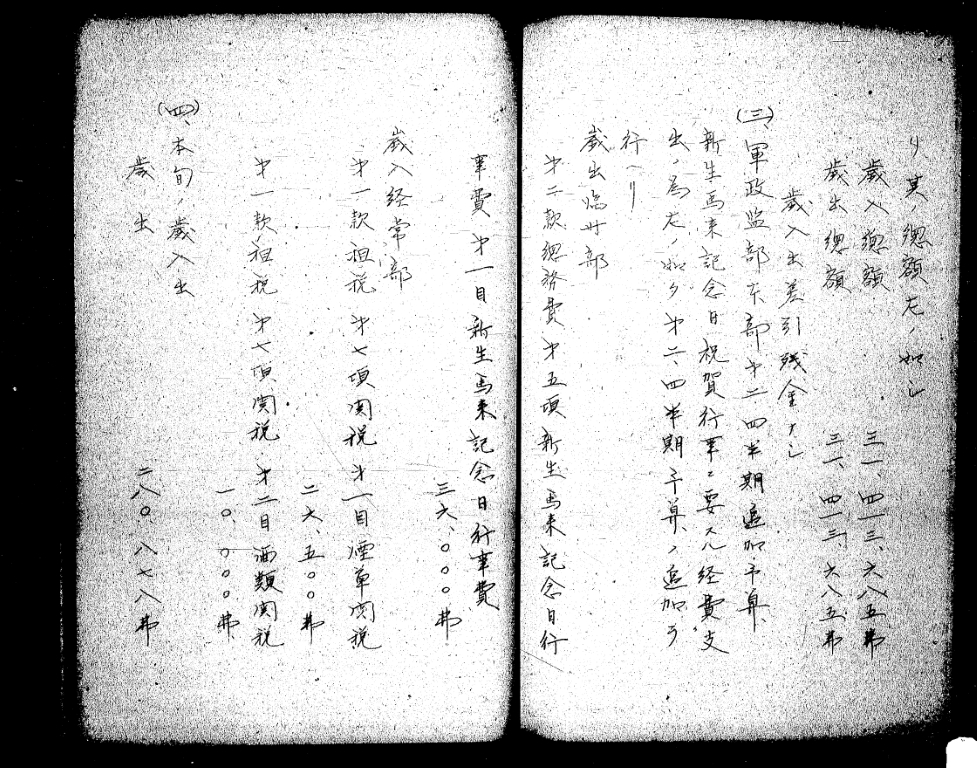 リ其ノ總額左ノ如シ
歳入總額 三一、四一三、六八五弗
歳出總額 三一、四一三、六八五弗
歳入出差引残金ナシ
(三)、軍政監部本部第二四半期追加予算
新生馬来記念日祝賀行事ニ要スル経費支
出ノ為左ノ如ク第二、四半期予算ノ追加ヲ
行ヘリ
歳出臨時部
第二款總務費第五項新生馬来記念日行
事費第一目新生馬来記念日行事費
三六、〇〇〇弗
歳入経常部
第一款租税第七項関税第一目煙草関税
二六、五〇〇弗
第一款租税第七項関税第二目酒類関税
一〇、〇〇〇弗
(四)、本旬ノ歳入出
歳出 二八〇、八七八弗